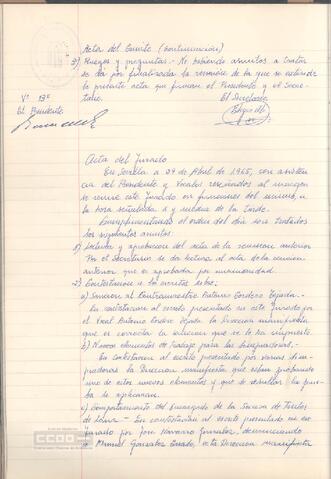 Acta del Comite (continuación)
3) Ruegos y preguntas.- No habiendo asuntos a tratar
se da por finalizada la reunion de la que se extiende
la presente acta que firman el Presidente y el Secre-
tario.
Vº Bº
El Presidente
El Secretario
Acta del Jurado
En Sevilla a 29 de Abril de 1965, con asisten
cia del Presidente y Vocales reseñados al margen
se reune este Jurado en
la hora señalada y de la tarde.
Cumplimentando el orden del dia son tratados
los siguientes asuntos:
1) Lectura y aprobacion del acta de la reunion anterior
Por el Secretario se da lectura al acta de la reunion
anterior que es aprobada por unanimidad.
2) Contestacion a los escritos sobre:
a) Sancion al Contramaestre Cordero Tejada.-
En contestacion al escrito presentado por este Jurado por
el Vocal Antonio la Direccion manifiesta
que es correcta la sancion que se le ha impuesto.
b) Nuevos elementos de trabajo para las limpiadoras.-
En contestacion al escrito presentado por varias limpia-
doras la Direccion manifiesta que estan probando
uno de estos nuevos elementos y que de resultar la prue-
ba se aplicaran.
c) Comportamiento del Encargado de la Seccion de Tintes
de Lana.- En contestacion al escrito presentado en este
Jurado por Jose Navarro Gonzalez, denunciando
a Manuel Gonzalez esta Direccion manifiesta
CCOO